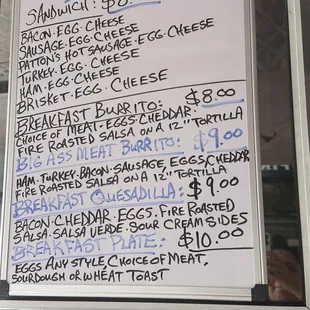 SANDWICH:
BACON·EGG·CHEESE
SAUSAGE·EGG·CHEESE
PATTONS HOT SAUSAGE·EGG·CHEESE
TURKEY·EGG·CHEESE
HAM·EGG·CHEESE
BRISKET·EGG·CHEESE
BREAKFAST BURRITO: $8.00
CHOICE OF MEAT·EGGS·CHEDDAR·
FIRE ROASTED SALSA ON A 12" TORTILLA
BIG ASS MEAT BURRITO: $9.00
HAM·TURKEY·BACON·SAUSAGE, EGGS, CHEDDAR
FIRE ROASTED SALSA ON A 12" TORTILLA
BREAKFAST QUESADILLA: $9.00
BACON·CHEDDAR·EGGS·FIRE ROASTED
SALSA·SALSA VERDE·SOUR CREAM SIDES
BREAKFAST PLATE: $10.00
EGGS ANY STYLE, CHOICE OF MEAT,
SOURDOUGH OR WHEAT TOAST